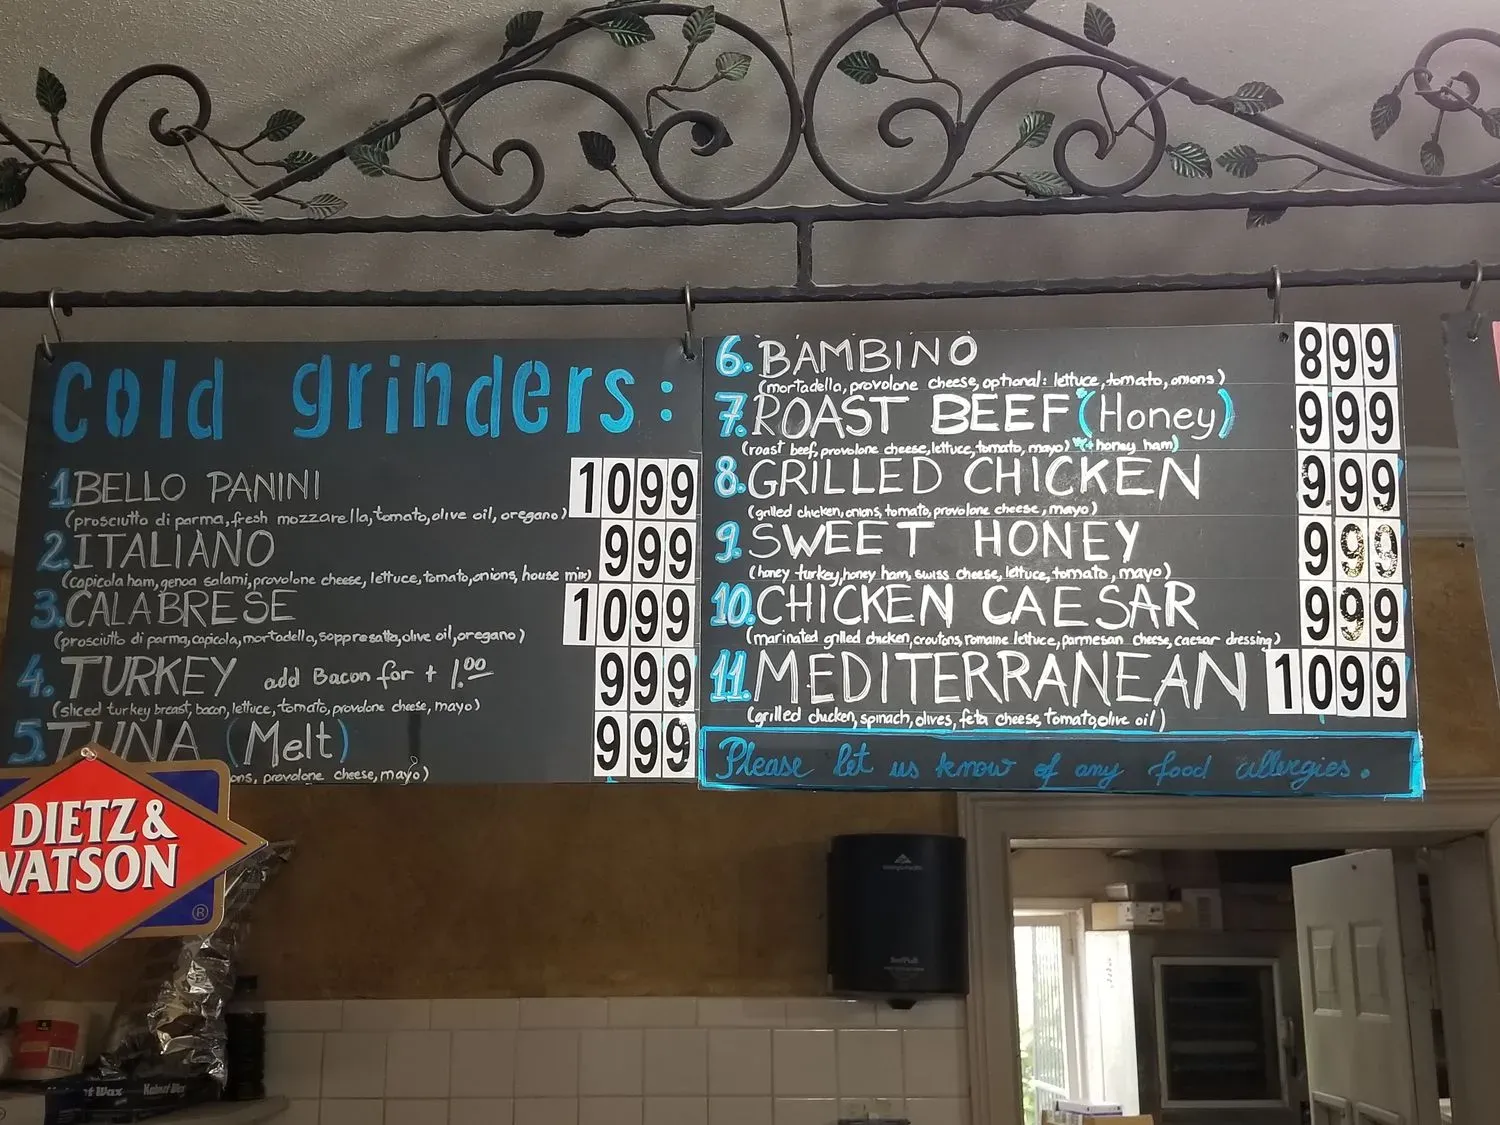 Cold grinders:
1 BELLO PANINI 1099
(prosciutto di parma, fresh mozzarella, tomato, olive oil, oregano)
2. ITALIANO 999
(capicola ham, genoa salami, provolone cheese, lettuce, tomato, onions, house mix)
3. CALABRESE 1099
(prosciutto di parma, capicola, mortadello, soppresatta, olive oil, oregano)
4. TURKEY add Bacon for + 1.00 999
(sliced turkey breast, bacon, lettuce, tomato, provolone cheese, mayo)
5. TUNA (Melt) 999
ons, provolone cheese, mayo)
6. BAMBINO 899
(mortadella, provolone cheese, optional: lettuce, tomato, onions)
7. ROAST BEEF (Honey) 999
(roast beef, provolone cheese, lettuce, tomato, mayo) (+ honey ham)
8. GRILLED CHICKEN 999
(grilled chicken, onions, tomato, provolone cheese, mayo)
9. SWEET HONEY 999
(honey turkey, honey ham, swiss cheese, lettuce, tomato, mayo)
10. CHICKEN CAESAR 999
(marinated grilled chicken, croutons, romaine lettuce, parmesan cheese, caesar dressing)
11. MEDITERRANEAN 1099
(grilled chicken, spinach, olives, feta cheese, tomato, olive oil)
Please let us know of any food allergies.
DIETZ &
WATSON
®